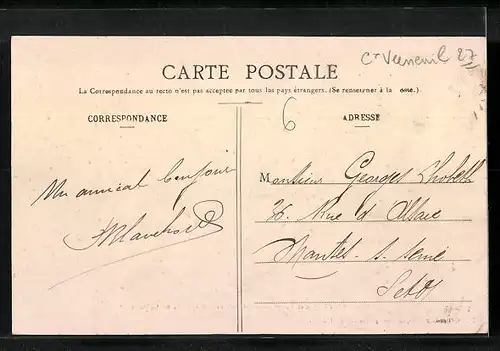 Cⁿ Verneuil 27
CARTE POSTALE
La Correspondance au recto n'est pas acceptée par tous les pays étrangers. (Se renseigner à la
CORRESPONDANCE
6
ADRESSE
Un amical bonjour
Monsieur Georges
36, Rue d'Alsace
Mantes-s-Seine
S et O